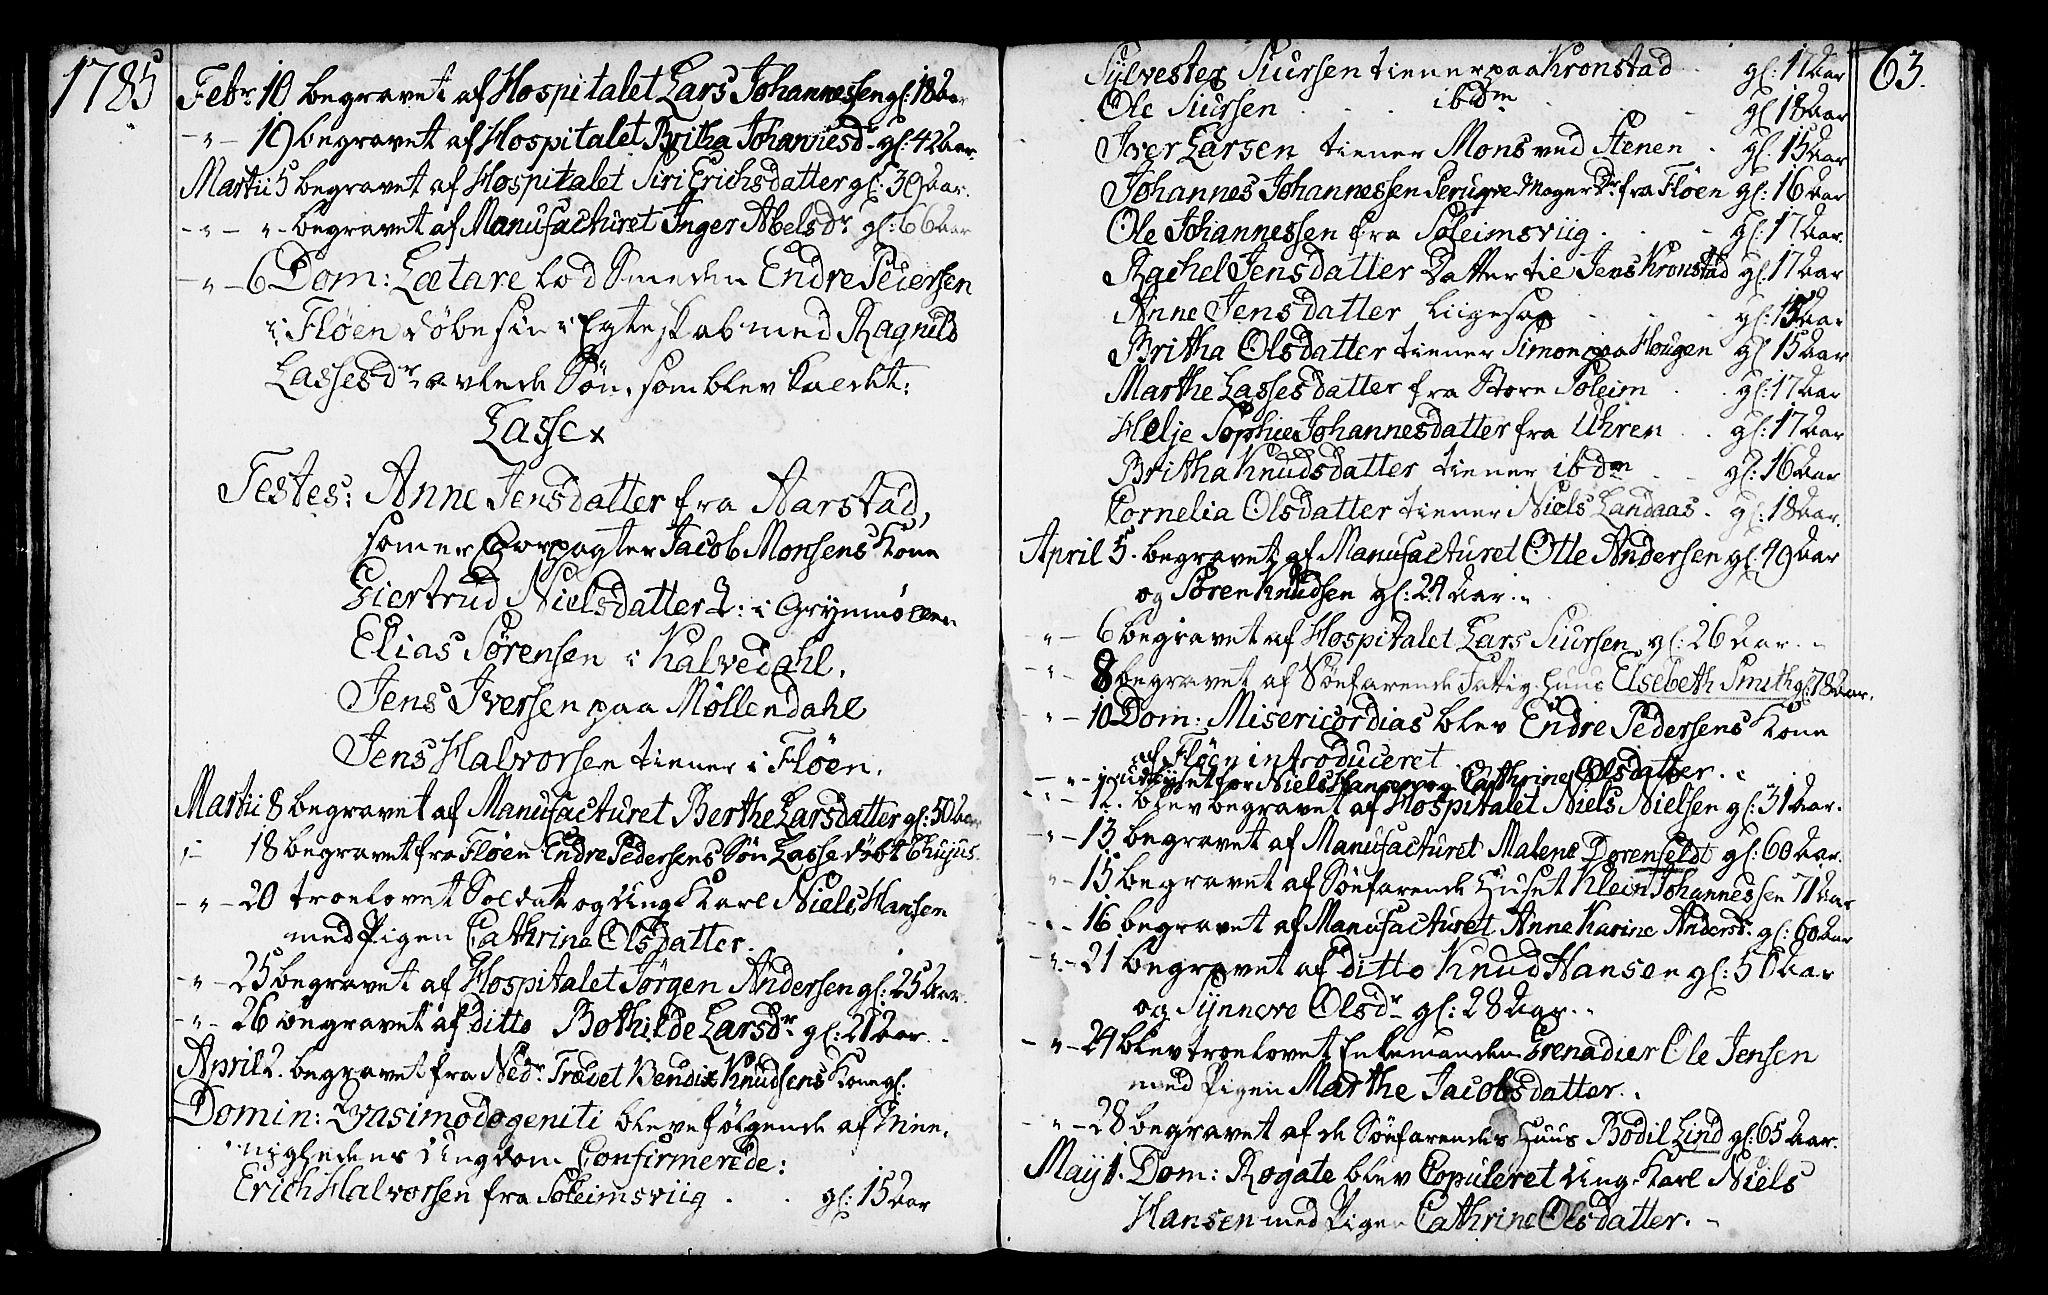 1785
Febr: 10 begravet af Hospitalet Lars Johannessen gl: 18 Aar
- " - 19 begravet af Hospitalet Britha Johannesdr gl: 42 Aar.
Martii 5 begravet af Hospitalet Siri Erichsdatter gl: 39 Aar.
- " - " - begravet af Manufacturet Inger Abelsdr gl: 66 Aar
- " - 6 Dom: Lætare lod Smeden Endre Pedersen
i Fløen døbe sin i Egteskab med Ragnild
Lassesdr avlede Søn, som blev kaldt:
Lasse x
Testes: Anne Jensdatter fra Aarstad,
som er Forpagter Jacob Monsens Kone
Giertrud Nielsdatter L: i Grynmølen
Elias Sørensen i Kalvedahl.
Jens Iversen paa Møllendahl
Jens Halvorsen tiener i Fløen.
Martii 8 begravet af Manufacturet Berthe Larsdatter gl: 50 Aar
" - 18 begravet fra Fløen Endre Pedersens Søn Lasse døbt 6 hujus.
- " - 20 troelovet Soldat og Ung Karl Niels Hansen
med Pigen Cathrine Olsdatter.
- " - 25 begravet af Hospitalet Jørgen Andersen gl: 25 Aar.
- " - 26 begravet af ditto Bothilde Larsdr. gl: 21 Aar.
April 2. begravet fra Nedr. Træet Bendix Knudsens Kone gl:
Domin: Qvasimodogeniti bleve følgende af Mee-
nighedens Ungdom Confirmerede:
Erich Halvorsen fra Soleimsviig . . gl: 15 Aar
63.
Sylvester Siursen tiener paa Kronstad . gl: 17 Aar
Ole Siursen . . ibdm . . gl 18 Aar
Iver Larsen tiener Mons ved Stenen . gl: 15 Aar
Johannes Johannessen Peruqve-Mager Dr. fra Fløen gl: 16 Aar
Ole Johannessen fra Soleimsviig . . - gl: 17 Aar.
Rachel Jensdatter Datter til Jens Kronstad gl: 17 Aar
Anne Jensdatter liigesaa . . gl: 15 Aar
Britha Olsdatter tiener Simon paa Hougen gl 15 Aar
Marthe Lassesdatter fra Store Soleim . . gl: 17 Aar
Helje Sophie Johannesdatter fra Uhren . . gl: 17 Aar
Britha Knudsdatter tiener ibdm . gl: 16 Aar
Cornelia Olsdatter tiener Niels Landaas . gl: 18 Aar.
April 5. begravet af Manufacturet Otle Andersen gl: 49 Aar
og Søren Knudsen gl: 24 Aar. "
" - 6 begravet af Hospitalet Lars Siursen gl: 26 Aar. "
" - 8 begravet af Søefarende Fattig-Huus Elsebeth Smith gl: 78 Aar.
" - 10 Dom: Misericordias blev Endre Pedersens Kone
af Fløen introduceret
- " - " udlyset for Niels Hansen og Cathrine Olsdatter.
" - 12. blev begravet af Hospitalet Niels Nielsen gl: 31 Aar.
" - 13 begravet af Manufacturet Malene Dorenfeldt gl: 60 Aar.
" - 15 begravet af Søefarende Huset Klein Johannessen 71 Aar
- " - 16 begravet af Manufacturet Anne Karine Andersdr. gl: 60 Aar
- " - 21 begravet af ditto Knud Hansen gl: 56 Aar
og Synneve Olsdr gl: 28 Aar.
- " - 24 blev troelovet Enkemanden Grenadier Ole Jensen
med Pigen Marthe Jacobsdatter.
- " - 28 begravet af de Søefarendes Huus Bodil Lind gl: 65 Aar.
May 1. Dom: Rogate blev Copuleret Ung Karl Niels
Hansen med Pigen Cathrine Olsdatter.